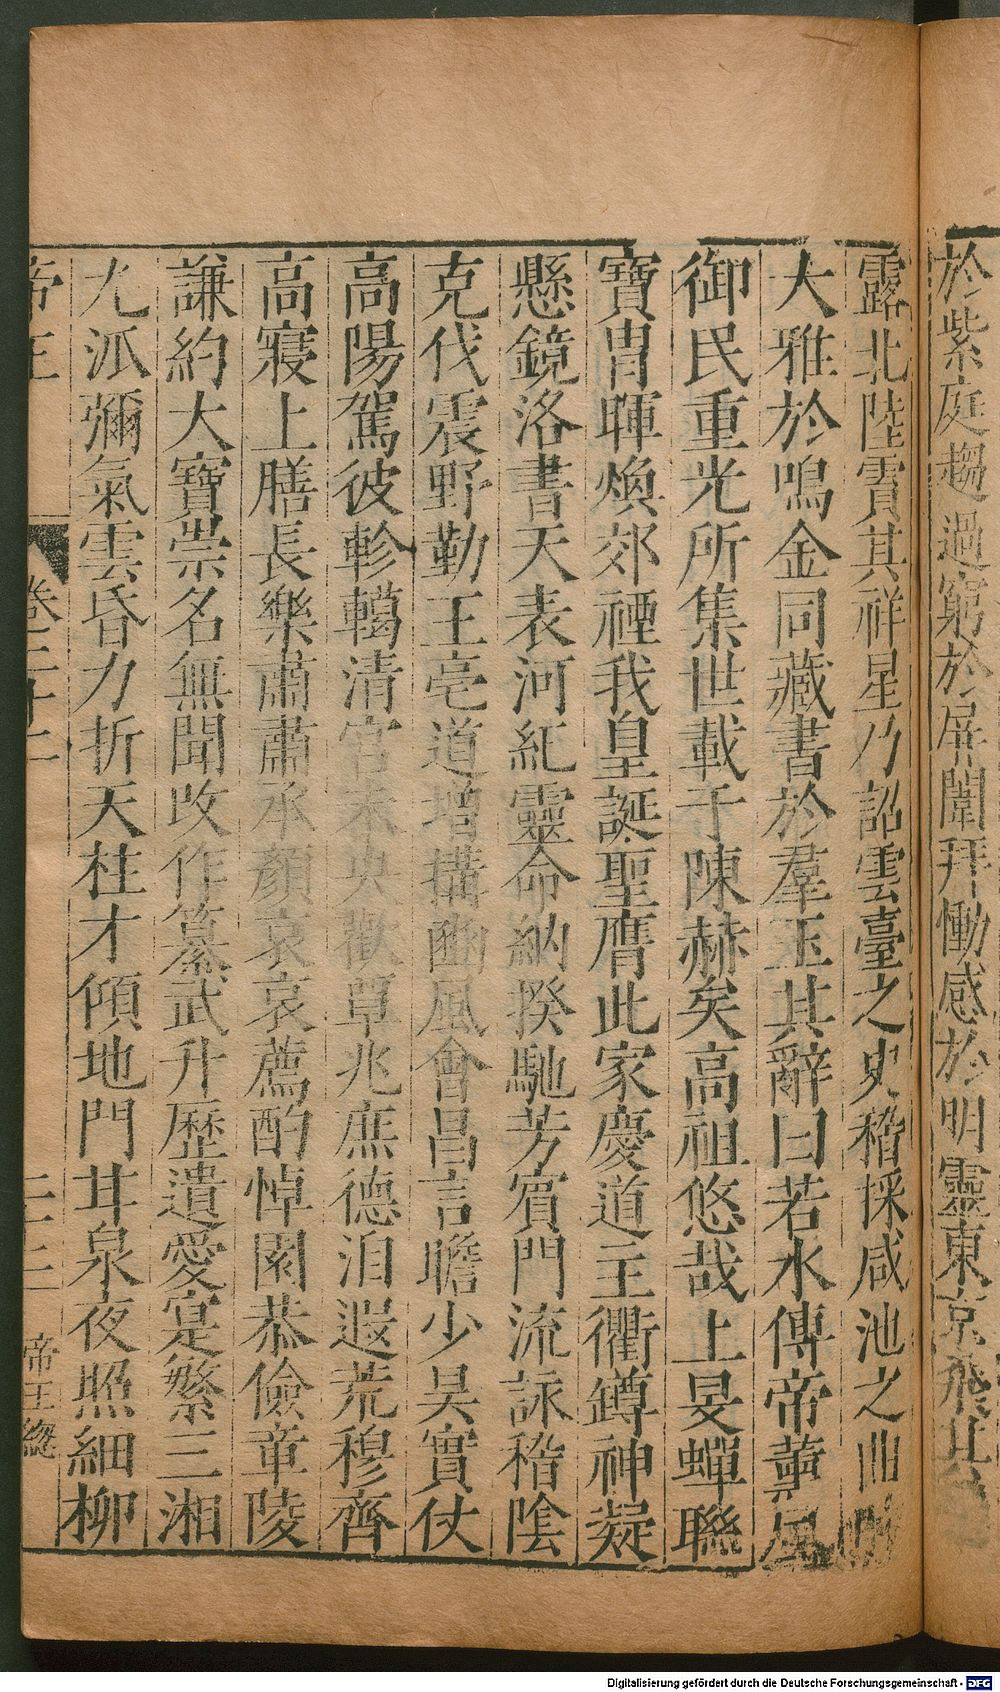 於紫庭趨過窮於屏闈拜慟感於明靈東京飛其
露北陸賓其祥星乃詔雲臺之史稽採咸池之曲
大雅於鳴金同藏書於羣玉其辭曰若水傳帝薫風
御民重光所集世載于陳赫矣高祖悠哉上旻蟬聯
寶胄暉煥郊禋我皇誕聖膺此家慶道主衢鐏神凝
懸鏡洛書天表河紀靈命納揆馳芳賓門流詠稽陰
克伐震野勤王亳道增構豳風會昌言瞻少昊實仗
高陽駕彼軫轕清宫未央歡覃兆庶德洎遐荒穆齊
高寢上膳長樂肅肅承顏哀哀薦酌悼園恭儉章陵
謙約大寶崇名無聞改作纂武升歷遺愛寔繁三湘
九派彌氣雲昏力折天柱才傾地門甘泉夜照細柳
帝王 卷三十二 二三 帝王總
Digitalisierung gefördert durch die Deutsche Forschungsgemeinschaft - DFG